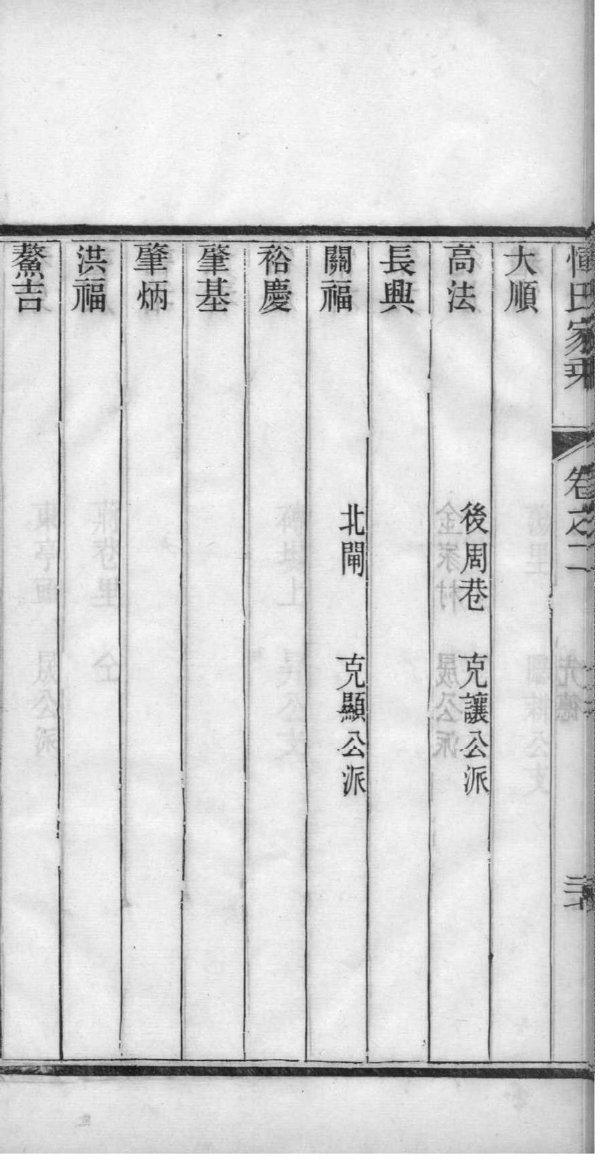 惲氏家乘 卷之二
大順
高法 後周巷 克讓公派
長興
關福 北閘 克顯公派
裕慶
肇基
肇炳
洪福
鰲吉